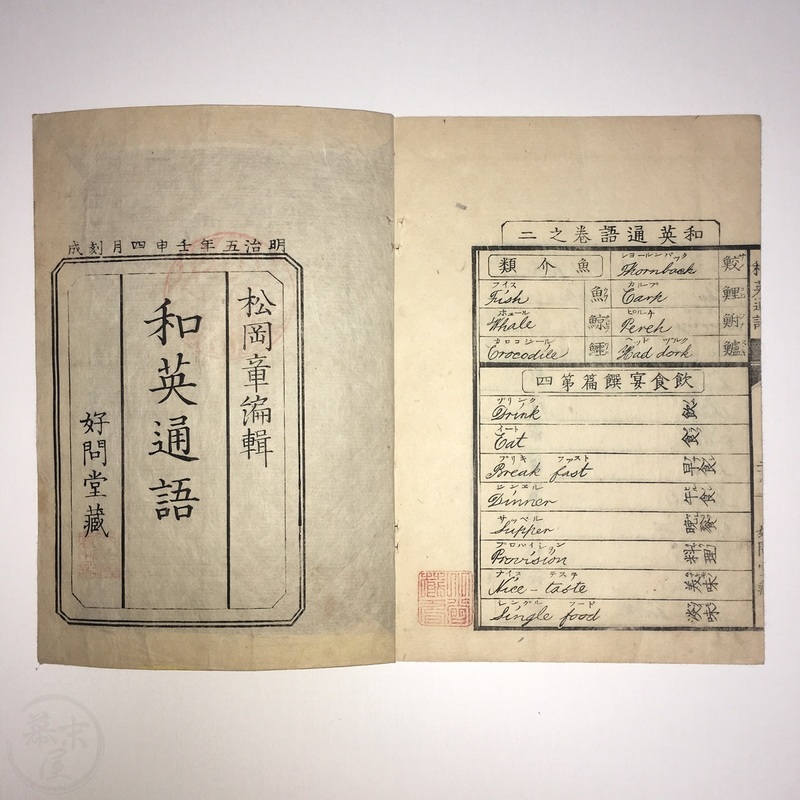 明治五年壬申四月刻成
松岡章編輯
和英通語
好問堂藏
和英通語卷之二
魚介類
フイス
Fish 魚
ホエール
Whale 鯨
カロコジール
Crocodile 鱷
Thornback 鮫
カループ
Carp 鯉
ピルチ
Perch 鮒
Had dork 鱸
飲食宴饌篇第四
ヅリンク
Drink 飲
イート
Eat 食
ブリキ フアスト
Break fast 早食
ヂンヱル
Dinner 午食
サッペル
Supper 晩餐
プロバイシヨン
Provision 料理
ナイス テステ
Nice-taste 美味
シングル フード
Single food 淡味
幕末屋